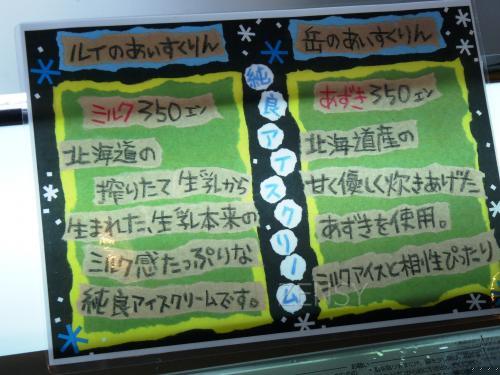 ルイのあいすくりん
ミルク350エン
北海道の
搾りたて生乳から
生まれた、生乳本来の
ミルク感たっぷりな
純良アイスクリームです。
純良アイスクリーム
岳のあいすくりん
あずき350エン
北海道産の
甘く優しく炊きあげた
あずきを使用。
ミルクアイスと相性ぴったり